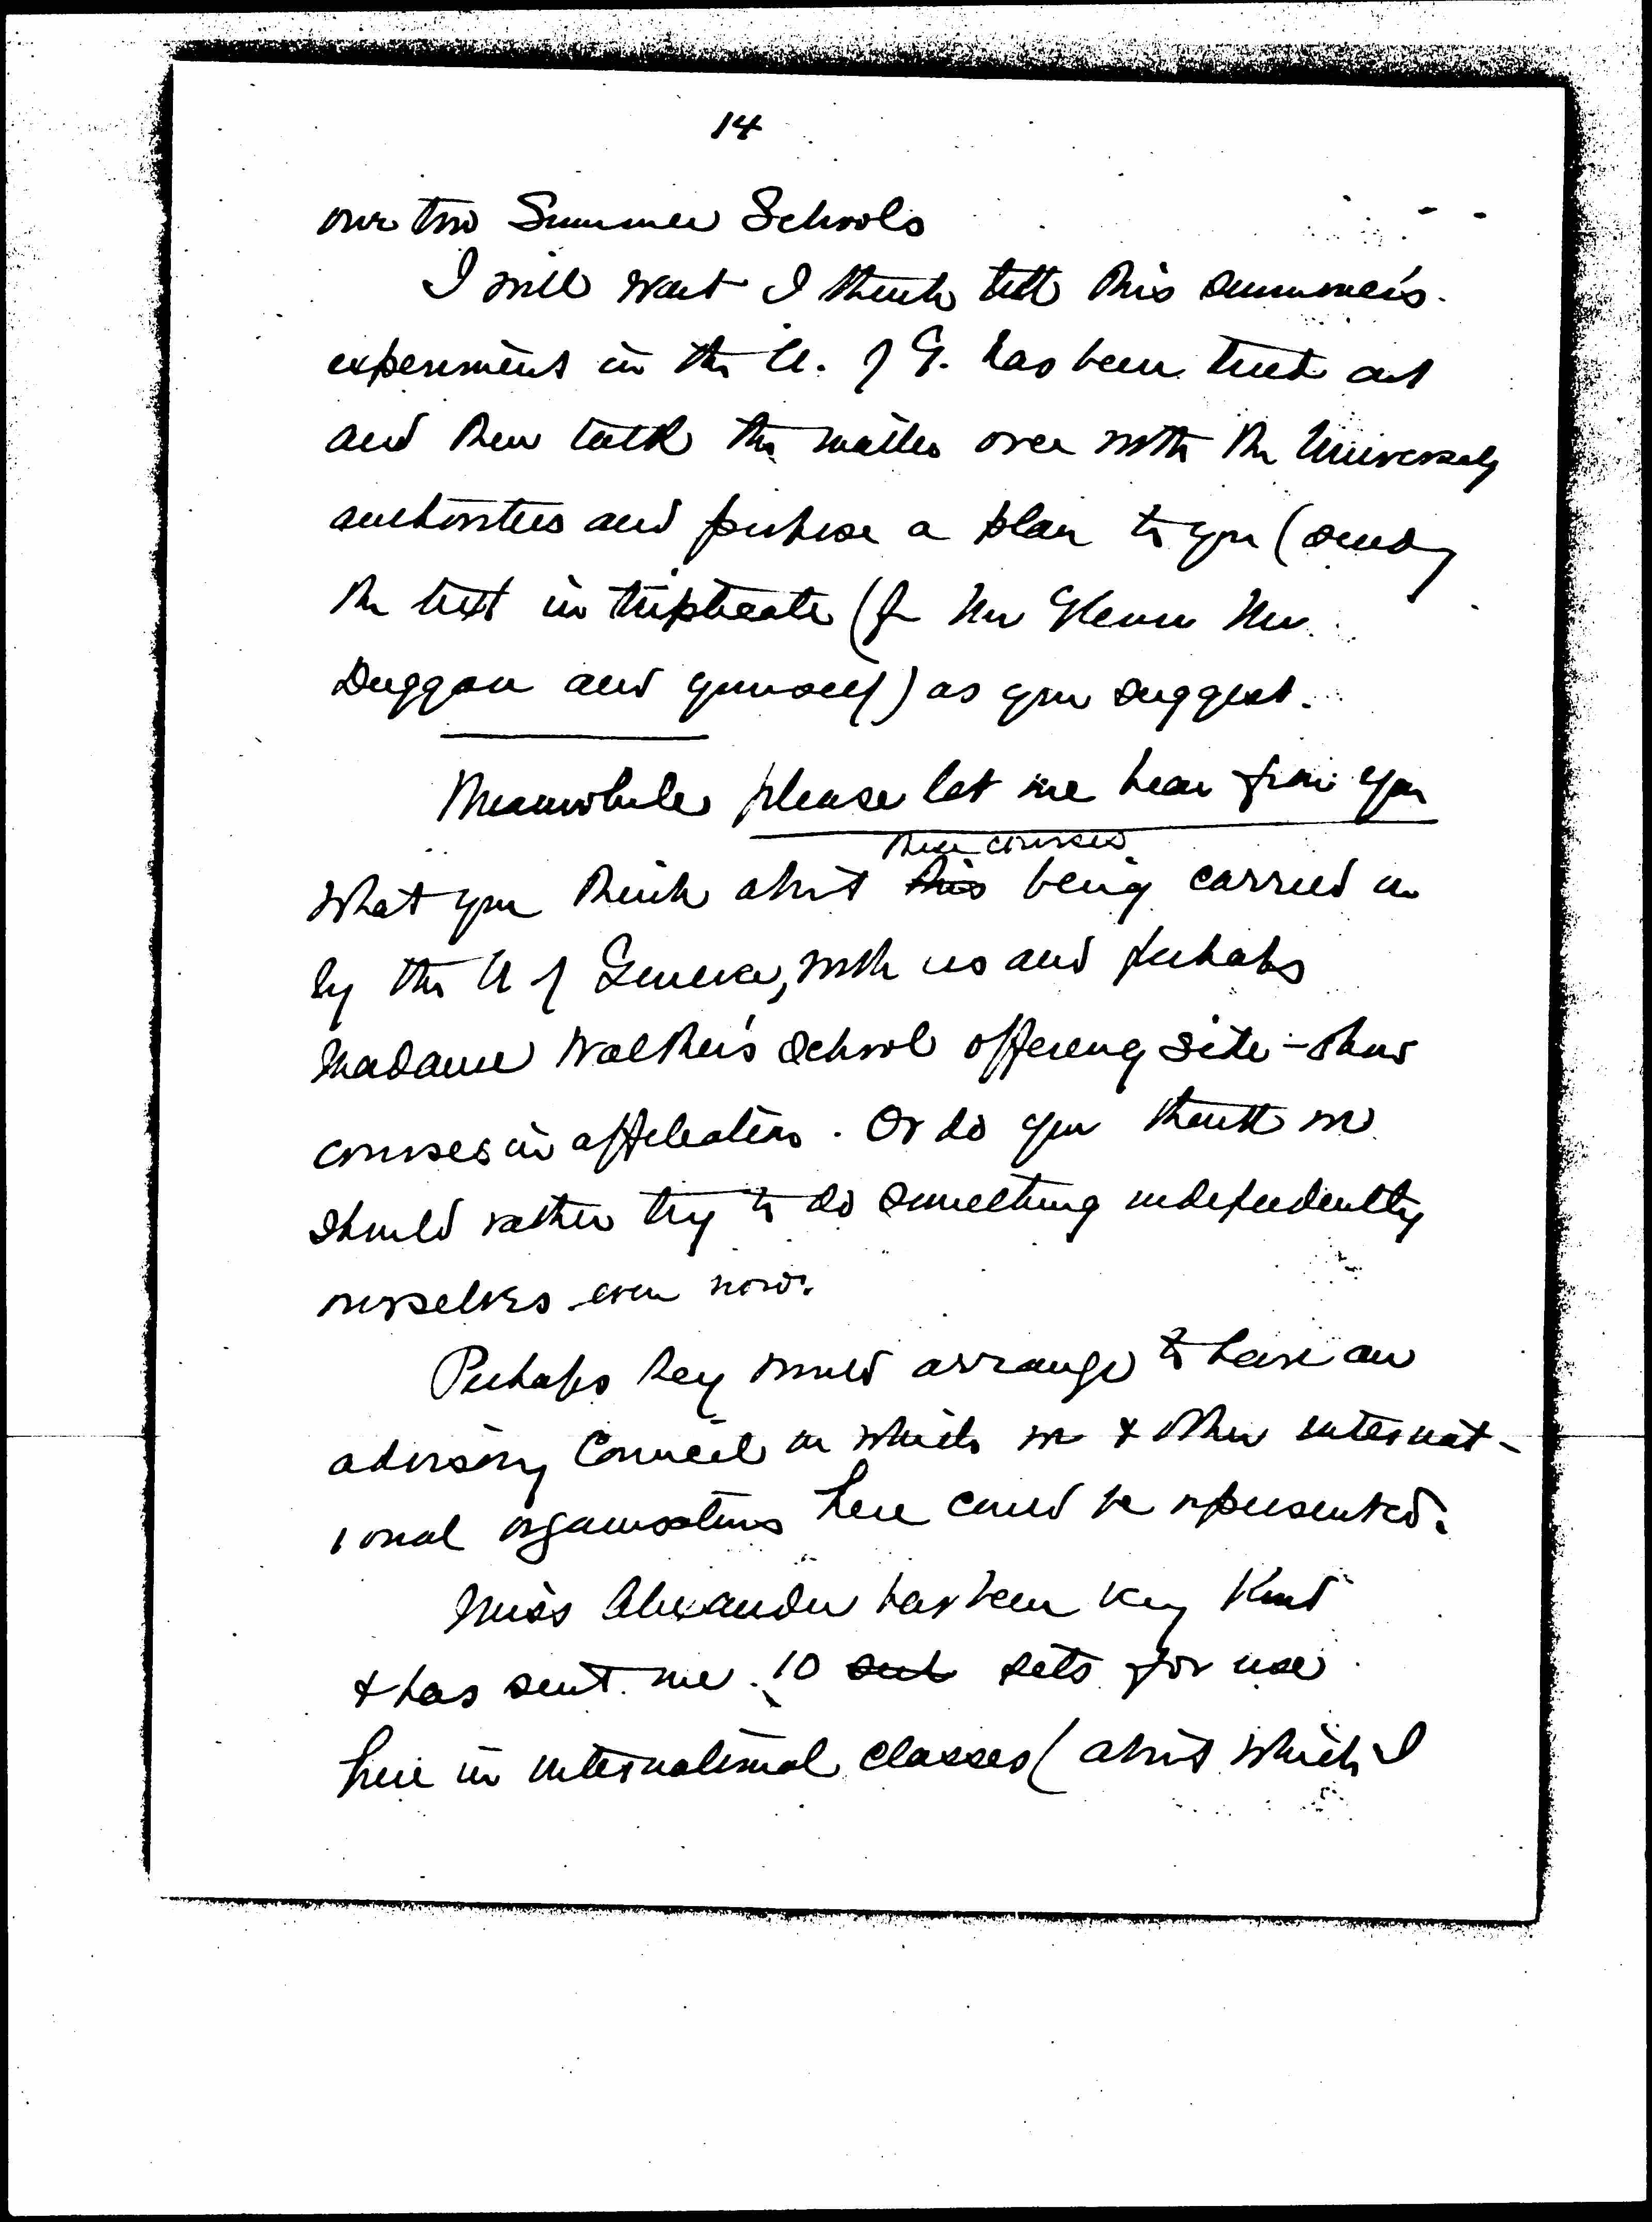 14
our two Summer Schools
I will wait I think till this summer's
experiment in the U. of G. has been tried out
and then talk the matter over with the University
authorities and propose a plan to you (sending
the text in triplicate (for Mr Glenn Mr.
Duggan and yourself) as you suggest.
Meanwhile please let me hear from you
these courses
what you think about this being carried on
by the U of Geneva, with us and perhaps
Madame Walther's School offering side-show
courses in affiliation. Or do you think we
should rather try to do something independently
ourselves even now?
Perhaps they would arrange to have an
advisory Council on which we & other internat-
ional organisations here could be represented.
Miss Alexander has been very kind
& has sent me 10 sets for use
here in international classes (about which I